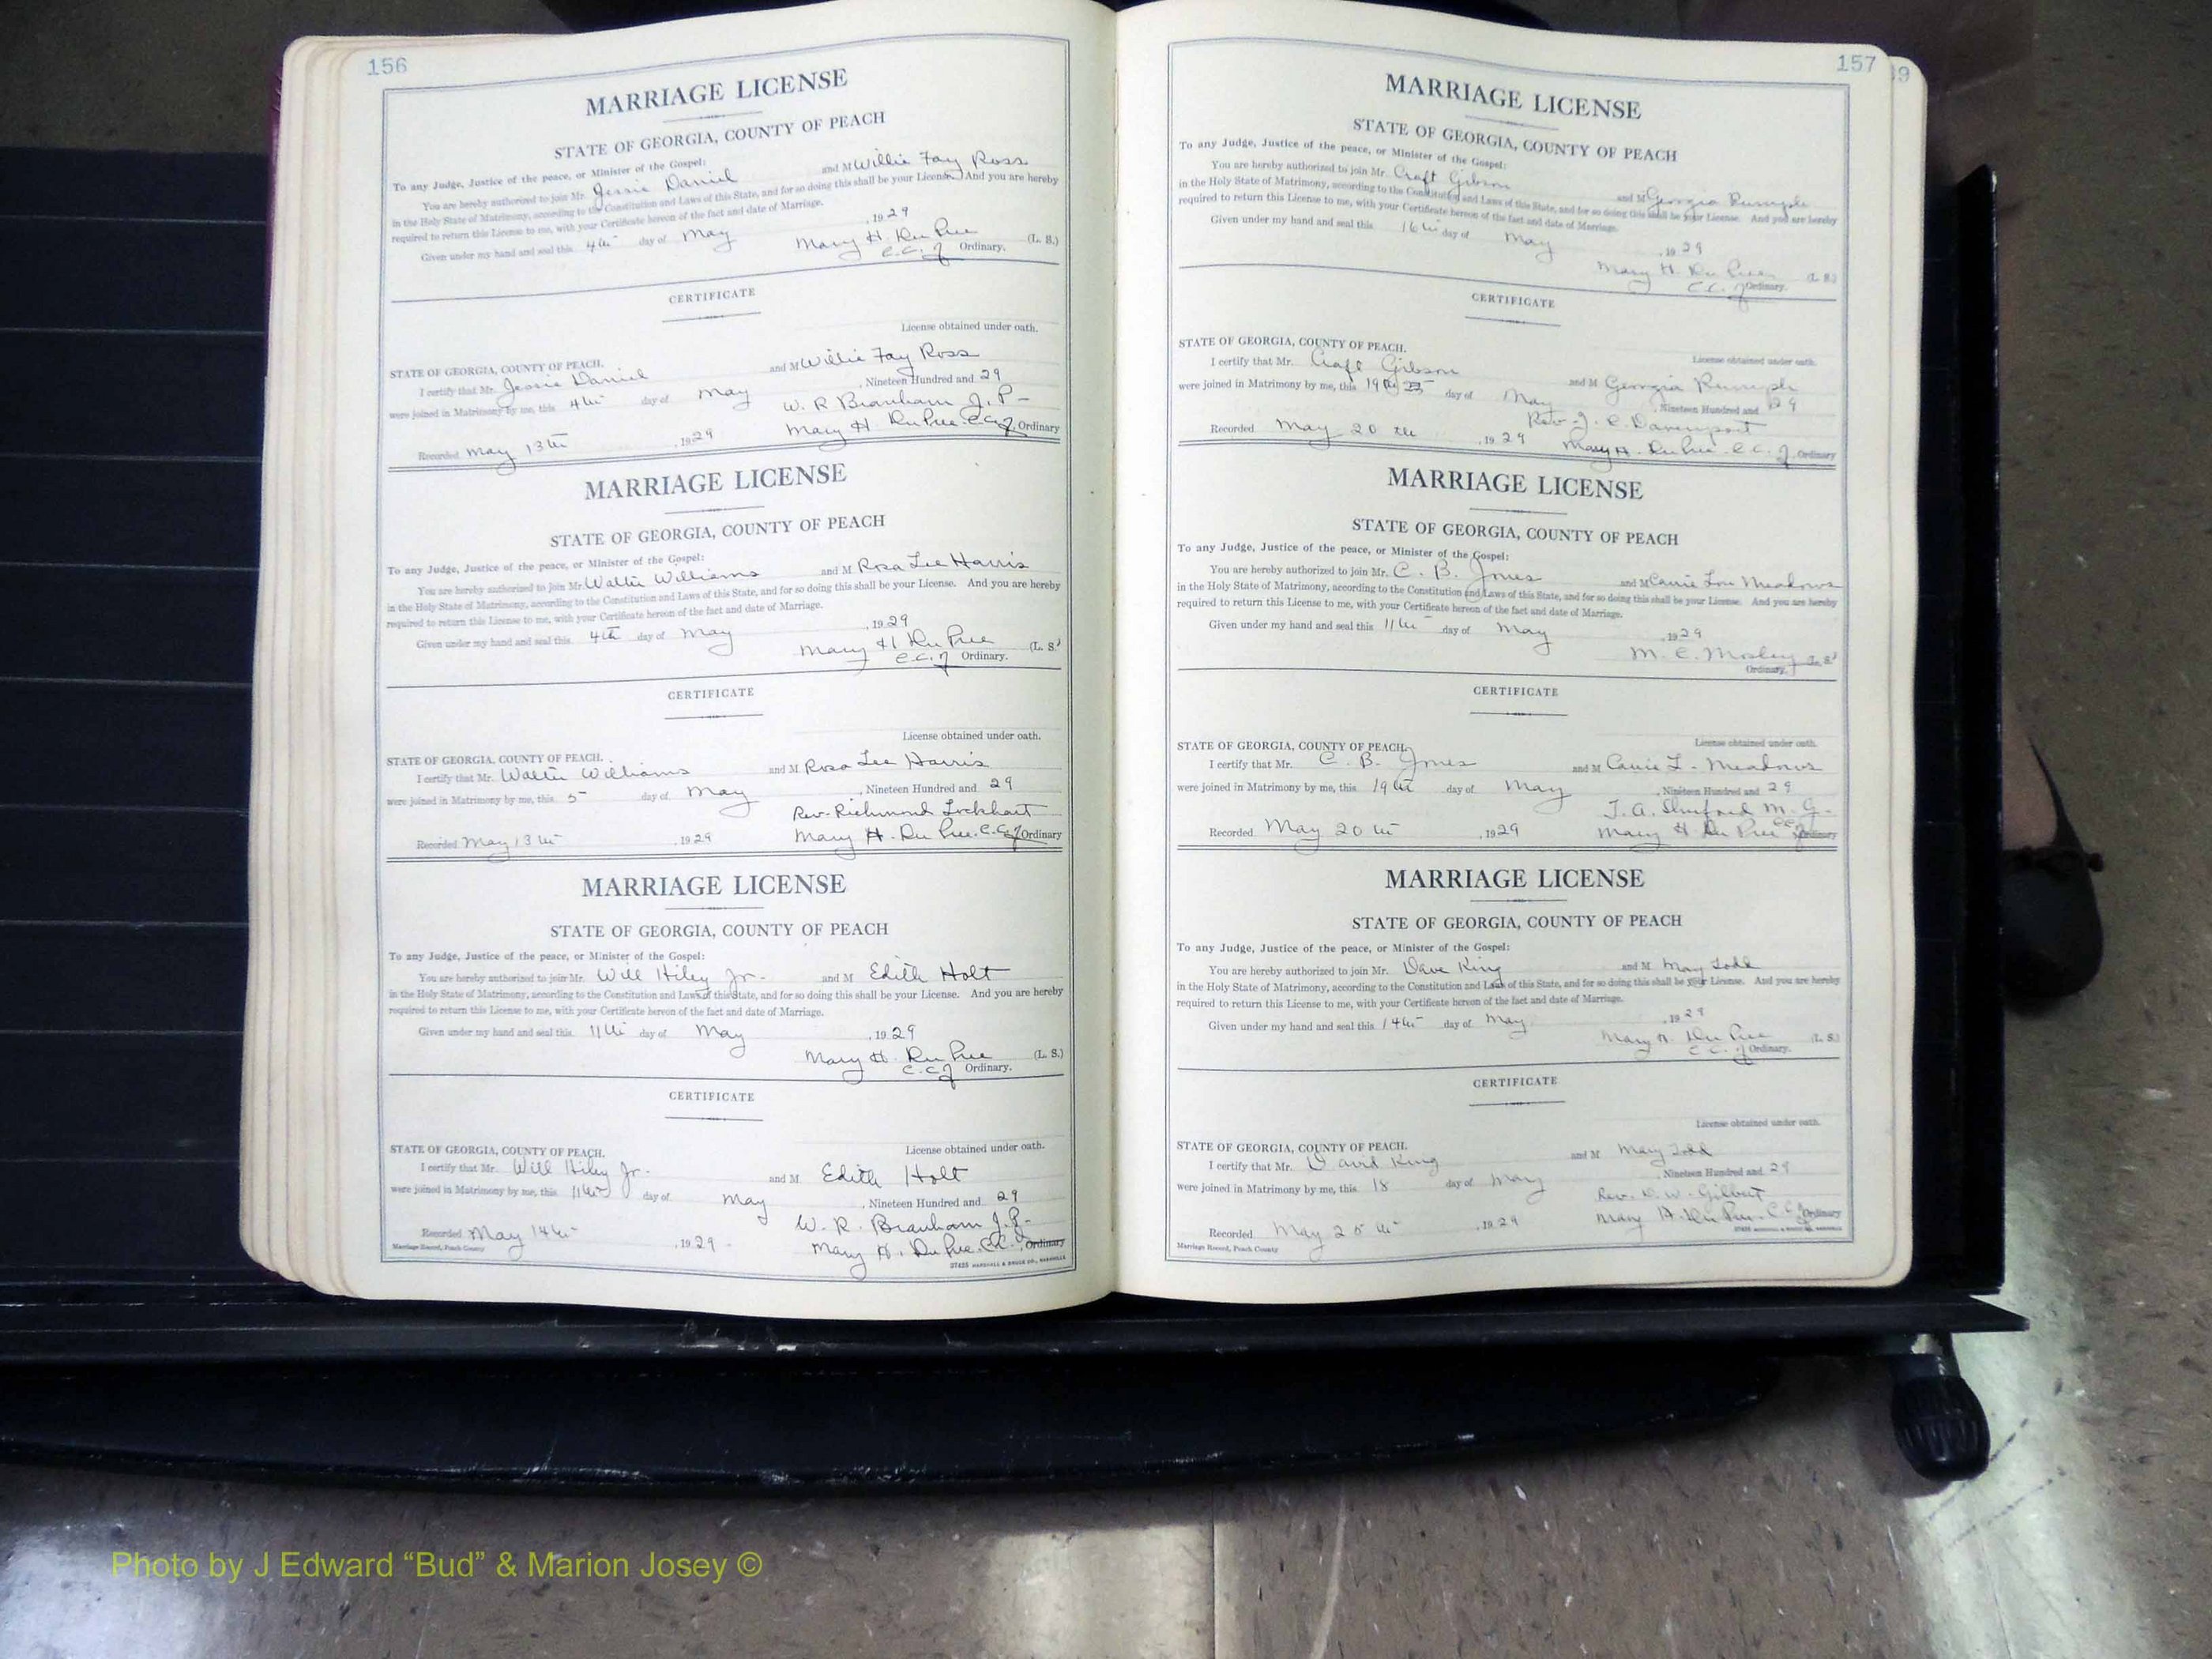 156
MARRIAGE LICENSE
STATE OF GEORGIA, COUNTY OF PEACH
To any Judge, Justice of the peace, or Minister of the Gospel:
You are hereby authorized to join Mr. Jessie Daniel and M Willie Fay Ross
in the Holy State of Matrimony, according to the Constitution and Laws of this State, and for so doing this shall be your License. And you are hereby
required to return this License to me, with your Certificate hereon of the fact and date of Marriage.
Given under my hand and seal this 4th day of May, 1929
Mary H. Du Pree (L. S.)
C.C.O. Ordinary.
CERTIFICATE
License obtained under oath.
STATE OF GEORGIA, COUNTY OF PEACH.
I certify that Mr. Jessie Daniel and M Willie Fay Ross
were joined in Matrimony by me, this 4th day of May, Nineteen Hundred and 29
W. R Branham J. P-
Recorded May 13th, 1929 Mary H. DuPree. C.C.O. Ordinary
MARRIAGE LICENSE
STATE OF GEORGIA, COUNTY OF PEACH
To any Judge, Justice of the peace, or Minister of the Gospel:
You are hereby authorized to join Mr. Walter Williams and M Rosa Lee Harris
in the Holy State of Matrimony, according to the Constitution and Laws of this State, and for so doing this shall be your License. And you are hereby
required to return this License to me, with your Certificate hereon of the fact and date of Marriage.
Given under my hand and seal this 4th day of May, 1929
Mary H Du Pree (L. S.)
C.C.O. Ordinary.
CERTIFICATE
License obtained under oath.
STATE OF GEORGIA, COUNTY OF PEACH.
I certify that Mr. Walter Williams and M Rosa Lee Harris
were joined in Matrimony by me, this 5 day of May, Nineteen Hundred and 29
Rev. Richmond Lockhart
Recorded May 13th, 1929 Mary H. Du Pree. C.C.O. Ordinary
MARRIAGE LICENSE
STATE OF GEORGIA, COUNTY OF PEACH
To any Judge, Justice of the peace, or Minister of the Gospel:
You are hereby authorized to join Mr. Will Hiley Jr. and M Edith Holt
in the Holy State of Matrimony, according to the Constitution and Laws of this State, and for so doing this shall be your License. And you are hereby
required to return this License to me, with your Certificate hereon of the fact and date of Marriage.
Given under my hand and seal this 11th day of May, 1929
Mary H. Du Pree (L. S.)
C.C.O. Ordinary.
CERTIFICATE
License obtained under oath.
STATE OF GEORGIA, COUNTY OF PEACH.
I certify that Mr. Will Hiley Jr. and M Edith Holt
were joined in Matrimony by me, this 11th day of May, Nineteen Hundred and 29
W. R. Branham J.P.
Recorded May 14th, 1929 Mary H. DuPree. C.C.O. Ordinary
Marriage Record, Peach County
MARSHALL & BRUCE CO., NASHVILLE
157
MARRIAGE LICENSE
STATE OF GEORGIA, COUNTY OF PEACH
To any Judge, Justice of the peace, or Minister of the Gospel:
You are hereby authorized to join Mr. Craft Gibson and M Georgia Rumph
in the Holy State of Matrimony, according to the Constitution and Laws of this State, and for so doing this shall be your License. And you are hereby
required to return this License to me, with your Certificate hereon of the fact and date of Marriage.
Given under my hand and seal this 16th day of May, 1929
Mary H. Du Pree (L. S.)
C.C.O. Ordinary.
CERTIFICATE
License obtained under oath.
STATE OF GEORGIA, COUNTY OF PEACH.
I certify that Mr. Craft Gibson and M Georgia Rumph
were joined in Matrimony by me, this 19th day of May, Nineteen Hundred and 29
Rev. J. C. Davenport
Recorded May 20th, 1929 Mary H. DuPree. C.C.O. Ordinary
MARRIAGE LICENSE
STATE OF GEORGIA, COUNTY OF PEACH
To any Judge, Justice of the peace, or Minister of the Gospel:
You are hereby authorized to join Mr. C. B. Jones and M Carrie Lou Meadows
in the Holy State of Matrimony, according to the Constitution and Laws of this State, and for so doing this shall be your License. And you are hereby
required to return this License to me, with your Certificate hereon of the fact and date of Marriage.
Given under my hand and seal this 11th day of May, 1929
M. C. Mosley (L. S.)
Ordinary.
CERTIFICATE
License obtained under oath.
STATE OF GEORGIA, COUNTY OF PEACH.
I certify that Mr. C. B. Jones and M Carrie L. Meadows
were joined in Matrimony by me, this 19th day of May, Nineteen Hundred and 29
M. G.
Recorded May 20th, 1929 Mary H Du Pree C.C.O. Ordinary
MARRIAGE LICENSE
STATE OF GEORGIA, COUNTY OF PEACH
To any Judge, Justice of the peace, or Minister of the Gospel:
You are hereby authorized to join Mr. Dave King and M May Todd
in the Holy State of Matrimony, according to the Constitution and Laws of this State, and for so doing this shall be your License. And you are hereby
required to return this License to me, with your Certificate hereon of the fact and date of Marriage.
Given under my hand and seal this 14th day of May, 1929
Mary H. Du Pree (L. S.)
C.C.O. Ordinary.
CERTIFICATE
License obtained under oath.
STATE OF GEORGIA, COUNTY OF PEACH.
I certify that Mr. David King and M Mary Todd
were joined in Matrimony by me, this 18 day of May, Nineteen Hundred and 29
Rev. D. W. Gilbert
Recorded May 25th, 1929 Mary H. Du Pree. C.C.O. Ordinary
Marriage Record, Peach County
Photo by J Edward “Bud” & Marion Josey ©